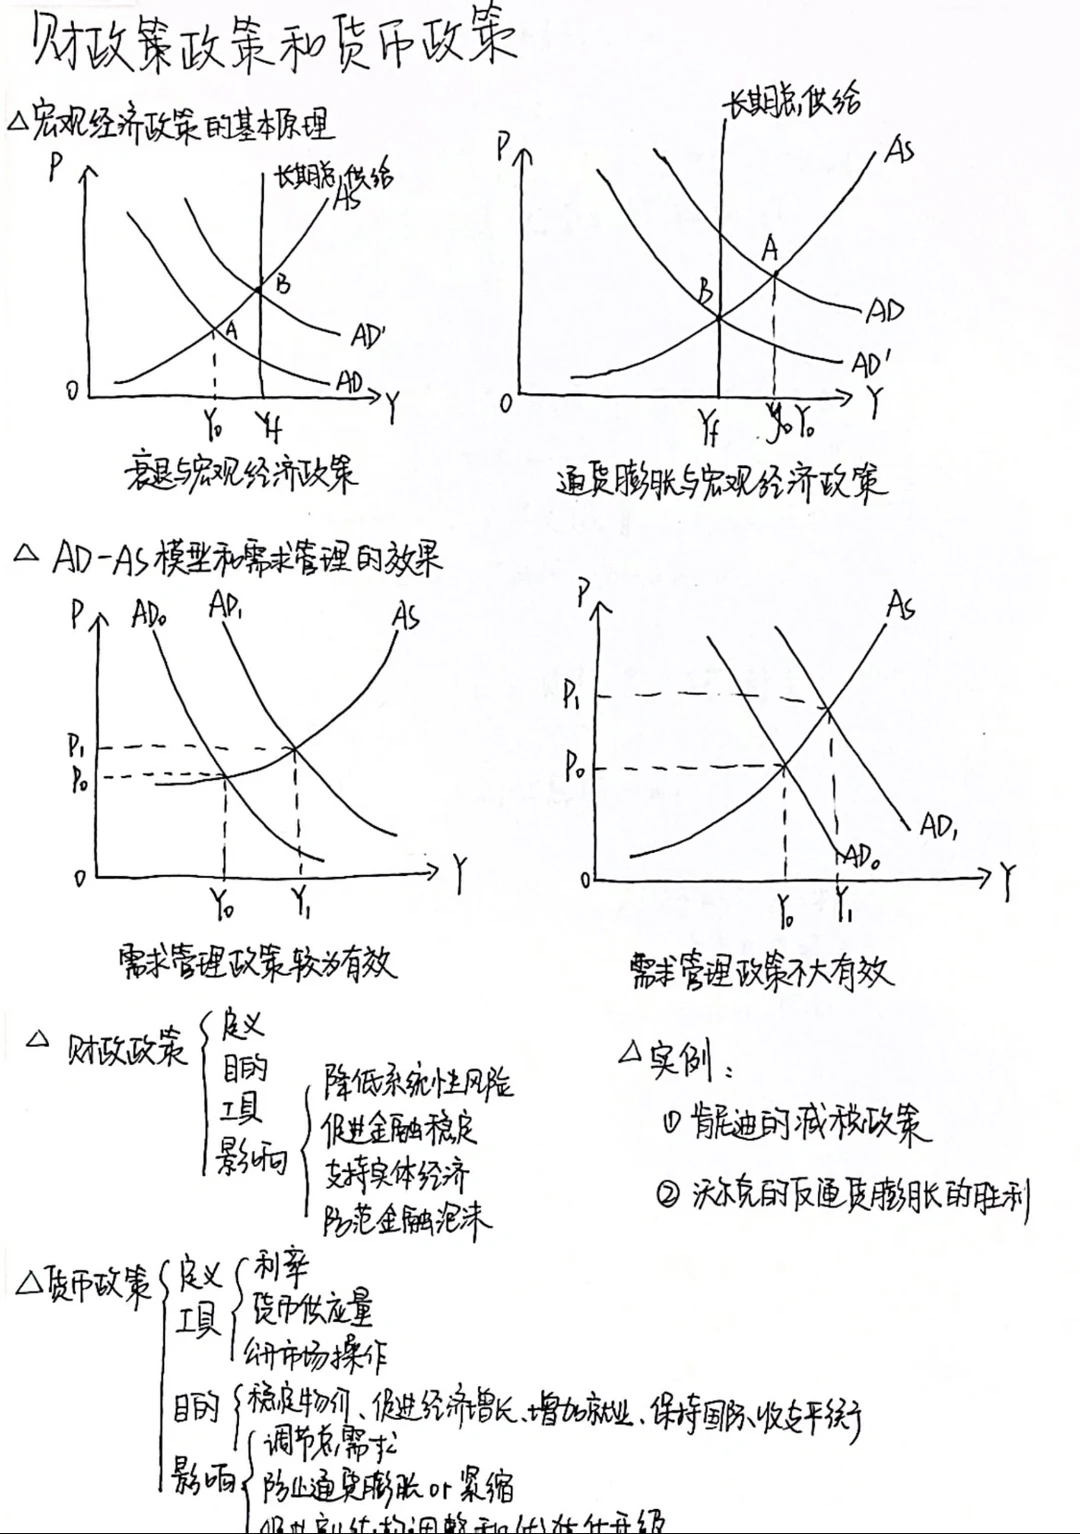 财政策政策和货币政策
△宏观经济政策的基本原理
P
长期总供给
AS
B
A
AD'
AD
0
Y₀
Yf
Y
衰退与宏观经济政策
长期总供给
P
AS
A
B
AD
AD'
0
Yf
Y₀
Y
通货膨胀与宏观经济政策
△ AD-AS模型和需求管理的效果
P
AD₀
AD₁
AS
P₁
P₀
0
Y₀
Y₁
Y
需求管理政策较为有效
P
AS
P₁
P₀
AD₁
AD₀
0
Y₀
Y₁
Y
需求管理政策不大有效
△ 财政政策
定义
目的
工具
影响
降低系统性风险
促进金融稳定
支持实体经济
防范金融泡沫
△实例：
① 肯尼迪的减税政策
② 沃尔克的反通货膨胀的胜利
△货币政策
定义
工具
利率
货币供应量
公开市场操作
目的
稳定物价、促进经济增长、增加就业、保持国际收支平衡
影响
调节总需求
防止通货膨胀or紧缩